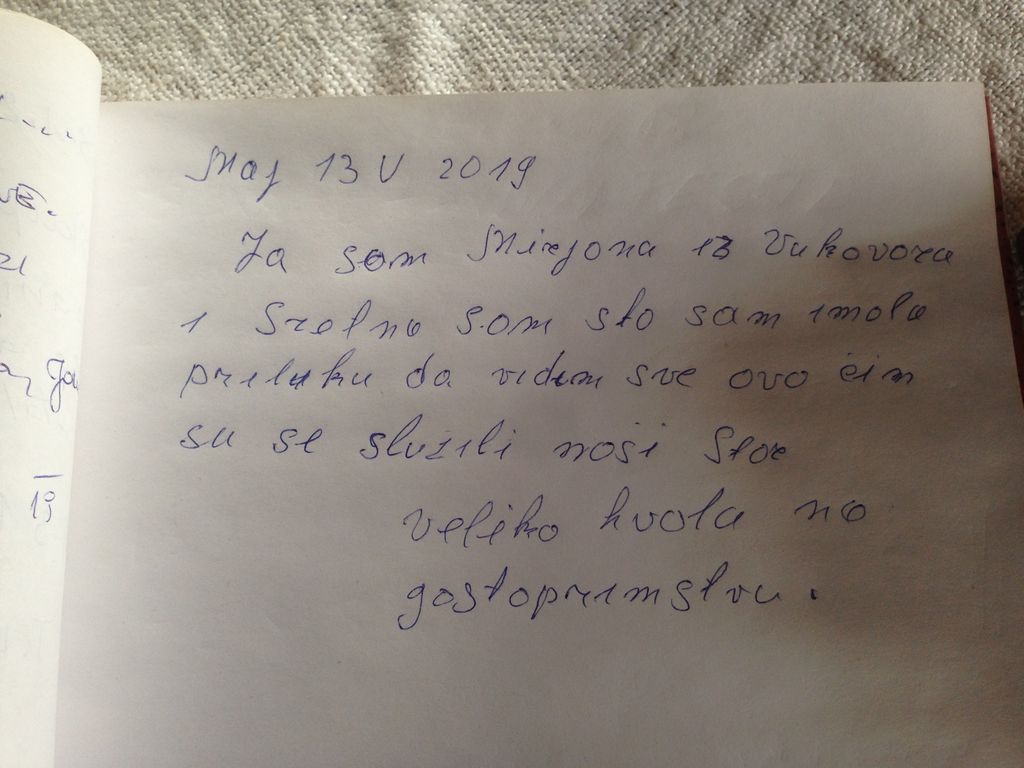 Maj 13 V 2019
Ja sam Mirjana iz Vukovara
i Sretna sam sto sam imala
priluku da vidim sve ovo čim
su se služili naši Stari
veliko hvala na
gostoprimstvu.
Ja
19